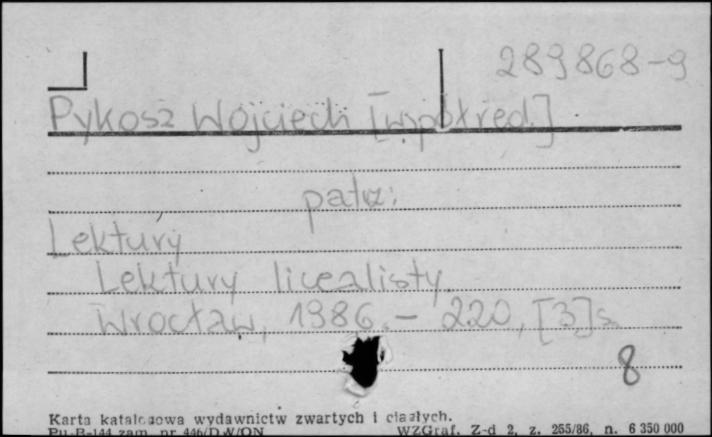 289868-9
Pykosz Wojciech [współred.]
patrz:
Lektury
Lektury licealisty.
Wrocław, 1986. - 220, [3] s.
8
Karta katalogowa wydawnictw zwartych i ciągłych.
Pu-B-144 zam. nr 446/D W/ON WZGraf. Z-d 2, z. 265/86, n. 6 350 000